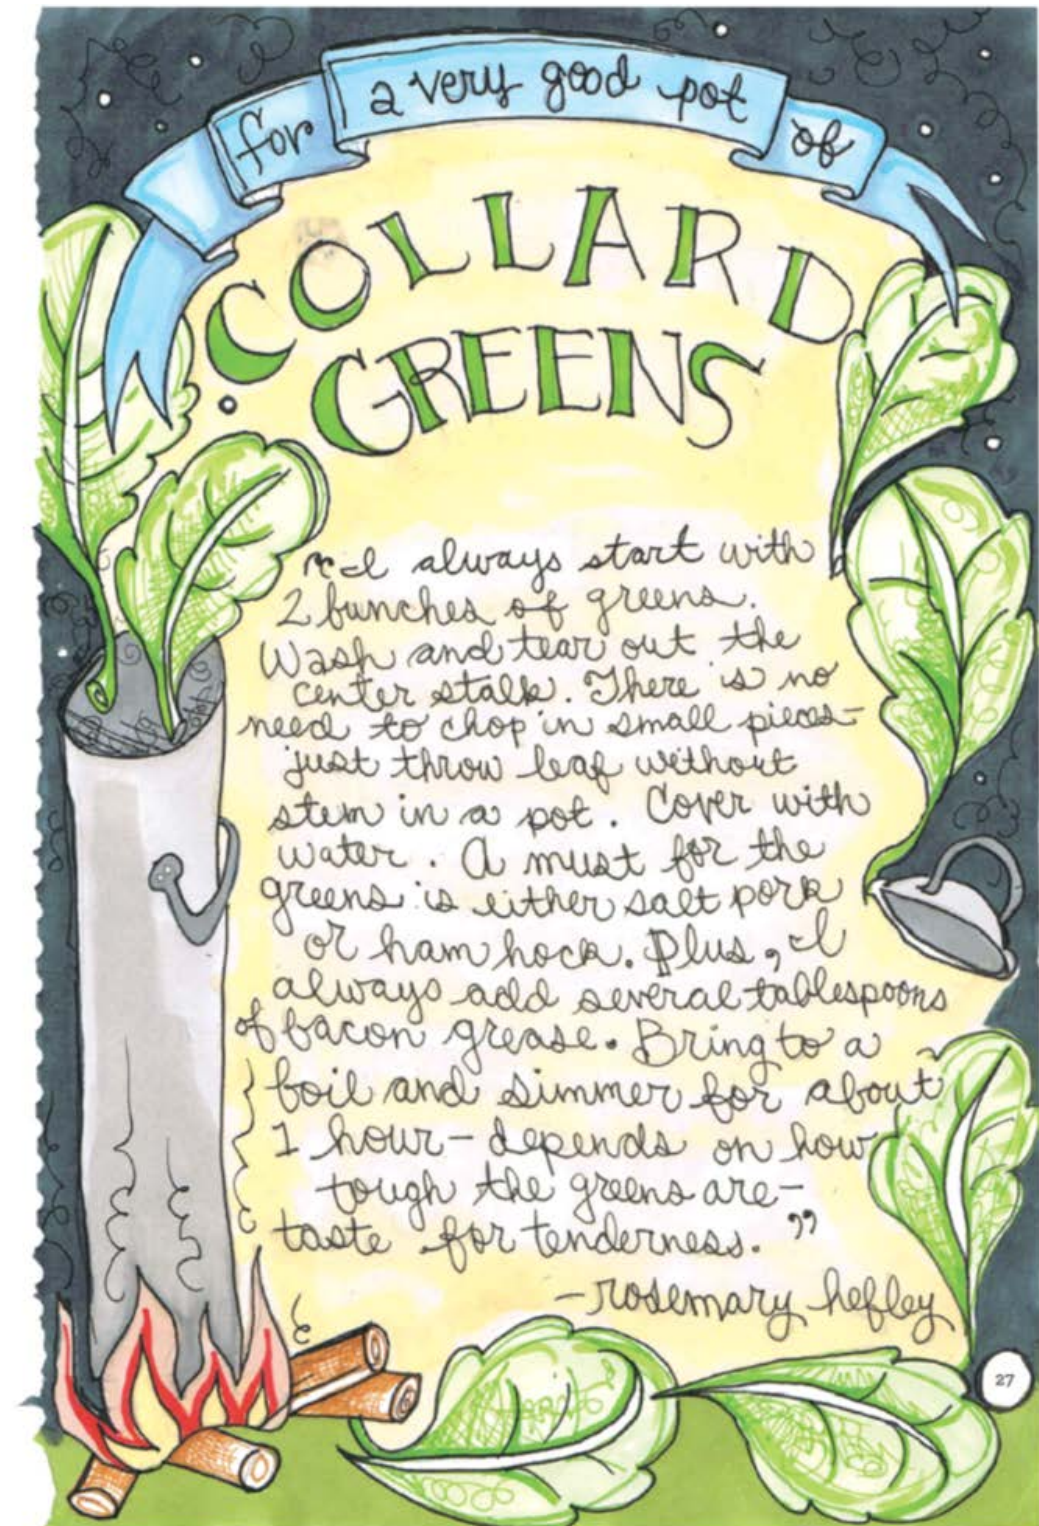 for a very good pot of
COLLARD
GREENS
"I always start with
2 bunches of greens.
Wash and tear out the
center stalk. There is no
need to chop in small pieces-
just throw leaf without
stem in a pot. Cover with
water. A must for the
greens is either salt pork
or ham hock. Plus, I
always add several tablespoons
of bacon grease. Bring to a
boil and simmer for about
1 hour - depends on how
tough the greens are-
taste for tenderness."
- rosemary hefley
27